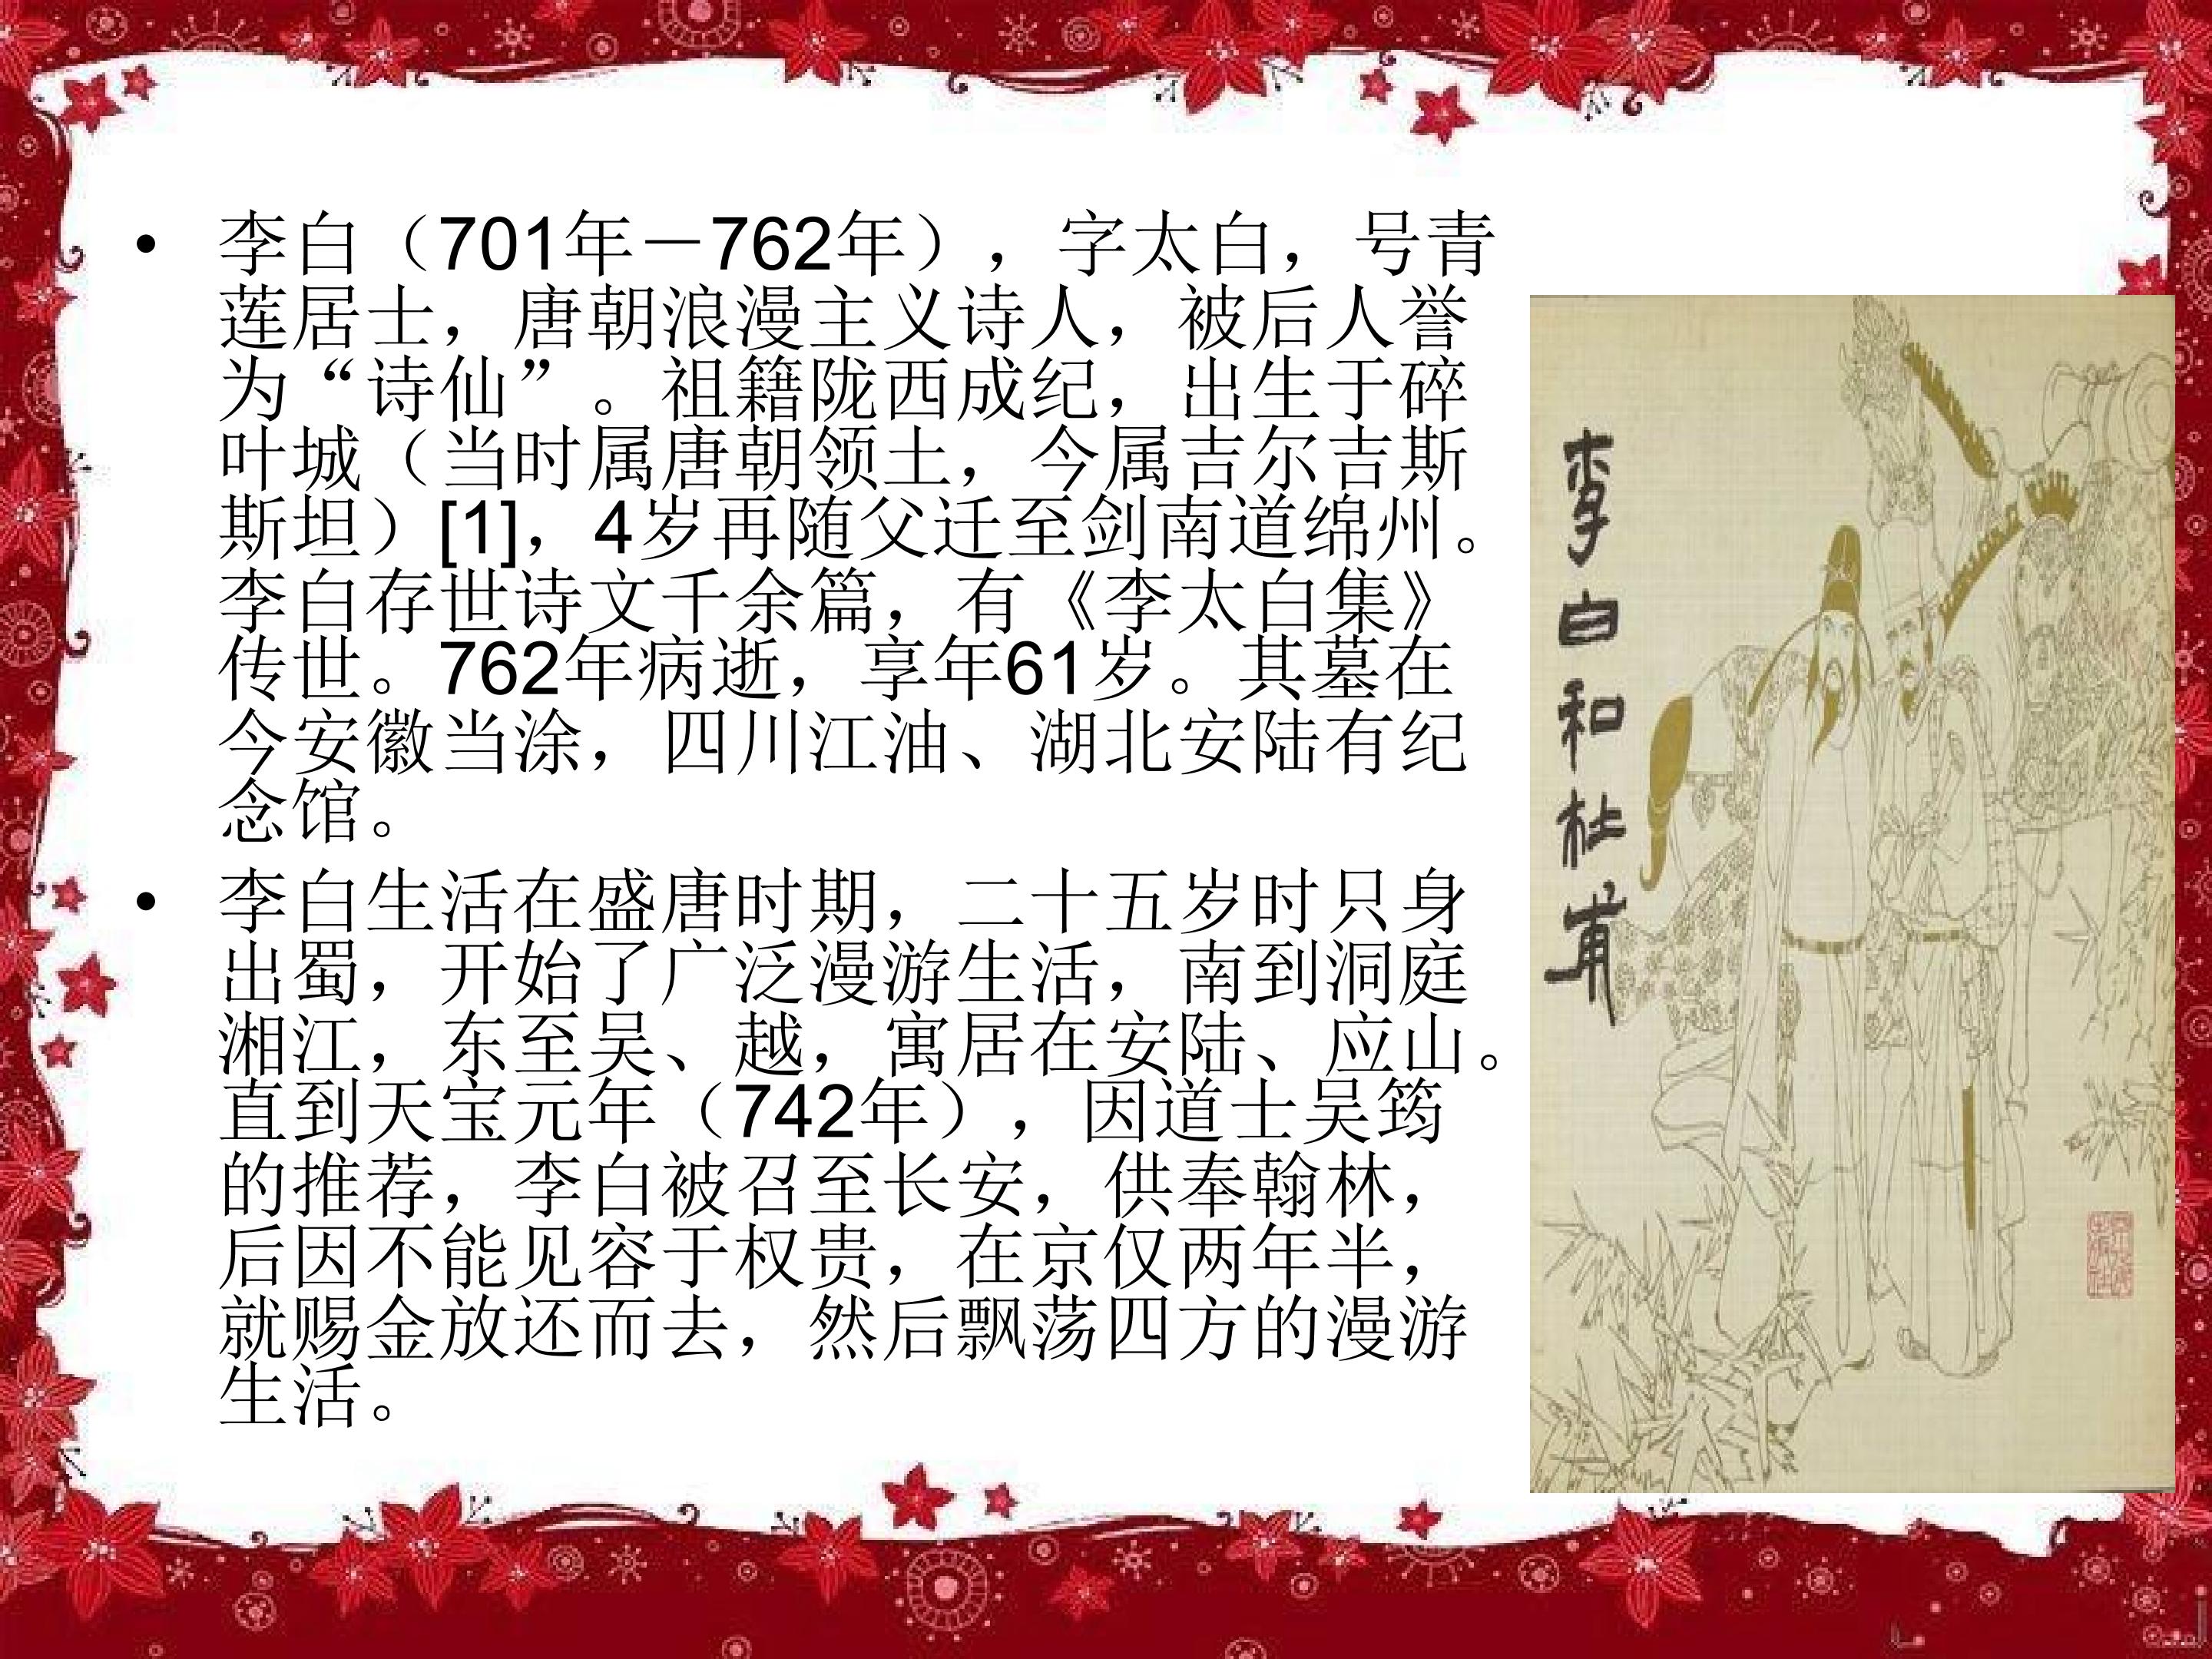 • 李白（701年－762年），字太白，号青
莲居士，唐朝浪漫主义诗人，被后人誉
为“诗仙”。祖籍陇西成纪，出生于碎
叶城（当时属唐朝领土，今属吉尔吉斯
斯坦）[1]，4岁再随父迁至剑南道绵州。
李白存世诗文千余篇，有《李太白集》
传世。762年病逝，享年61岁。其墓在
今安徽当涂，四川江油、湖北安陆有纪
念馆。
• 李白生活在盛唐时期，二十五岁时只身
出蜀，开始了广泛漫游生活，南到洞庭
湘江，东至吴、越，寓居在安陆、应山。
直到天宝元年（742年），因道士吴筠
的推荐，李白被召至长安，供奉翰林，
后因不能见容于权贵，在京仅两年半，
就赐金放还而去，然后飘荡四方的漫游
生活。
李白和杜甫